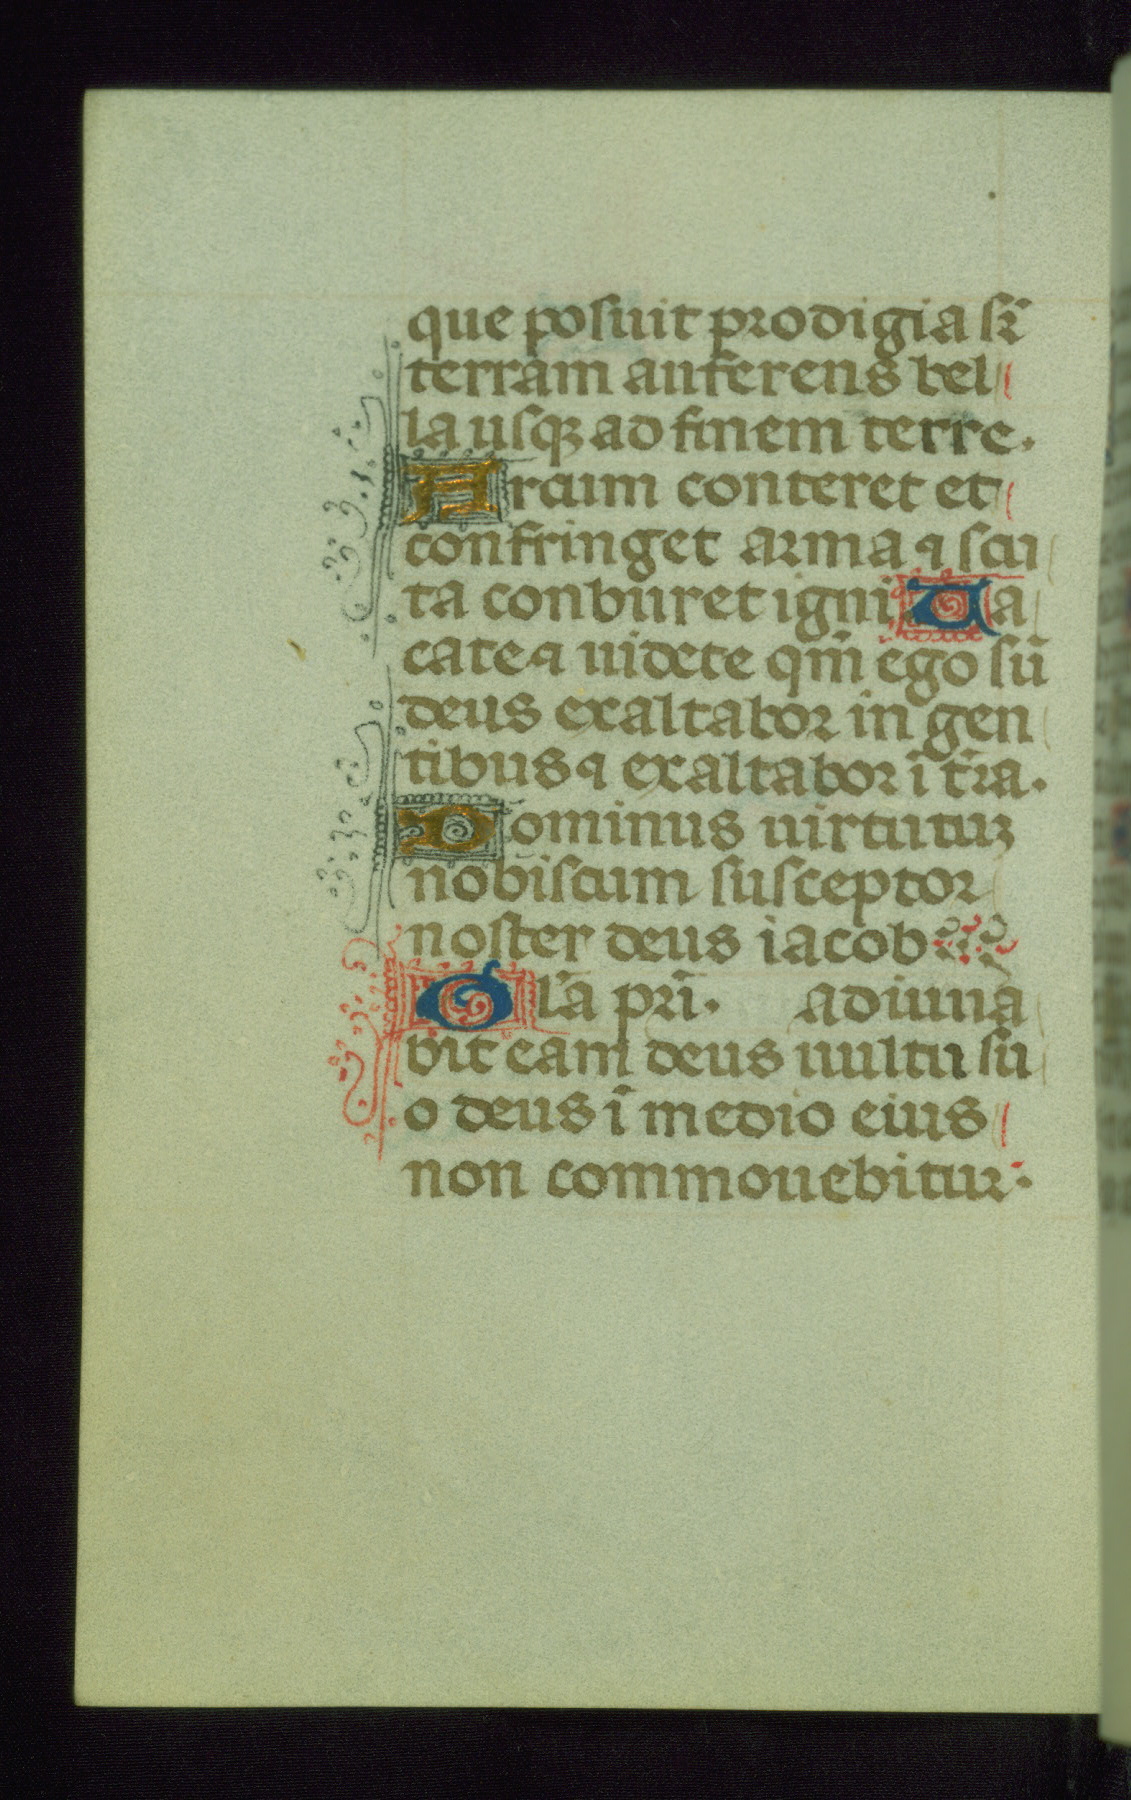 que posuit prodigia sr̃
terram auferens bel
la usqꝫ ad finem terre.
Arcum conteret et
confringet arma ⁊ scu
ta conburet igni Ua
cate ⁊ uidete qm̃ ego sũ
deus exaltabor in gen
tibus ⁊ exaltabor ĩ tr̃a.
Dominus uirtutuꝫ
nobiscum susceptor
noster deus iacob
Gl̃a pr̃i. adiuua
bit eam deus uultu su
o deus ĩ medio eius
non commouebitur.